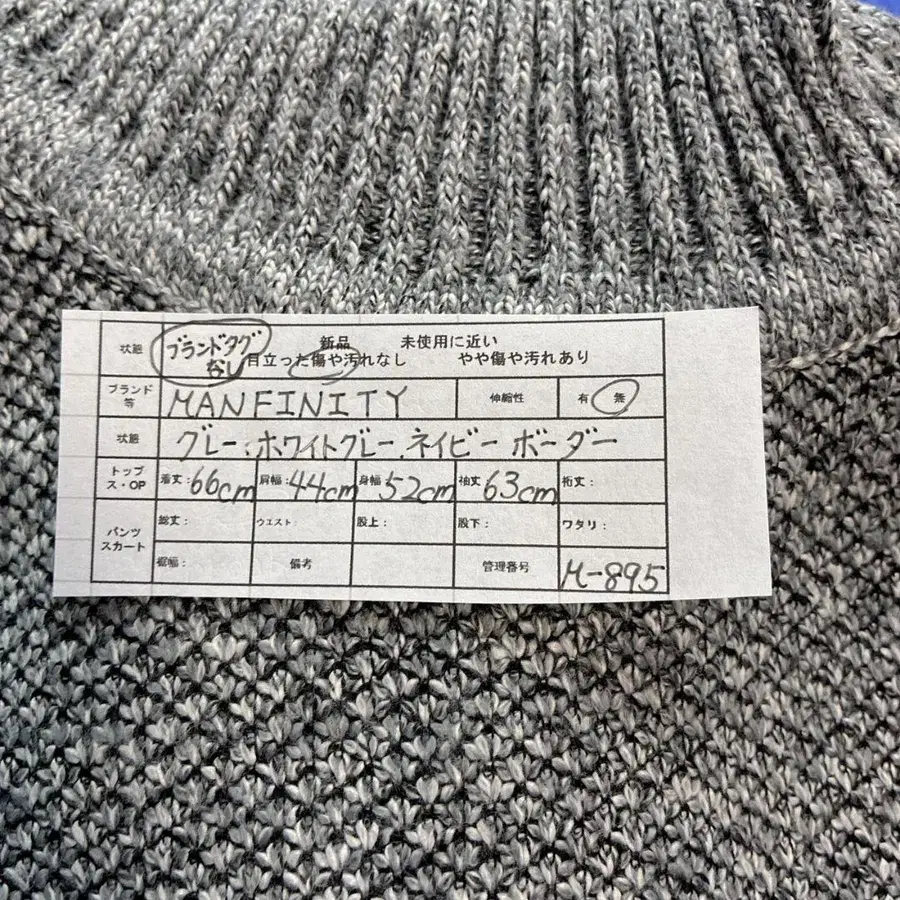 状態 ブランドタグ 新品 未使用に近い
なし 目立った傷や汚れなし やや傷や汚れあり
ブランド等 MANFINITY 伸縮性 有 無
状態 グレー.ホワイトグレー.ネイビー ボーダー
トップス・OP 着丈:66cm 肩幅:44cm 身幅:52cm 袖丈:63cm 裄丈:
パンツスカート 総丈: ウエスト: 股上: 股下: ワタリ:
裾幅: 備考 管理番号 M-895